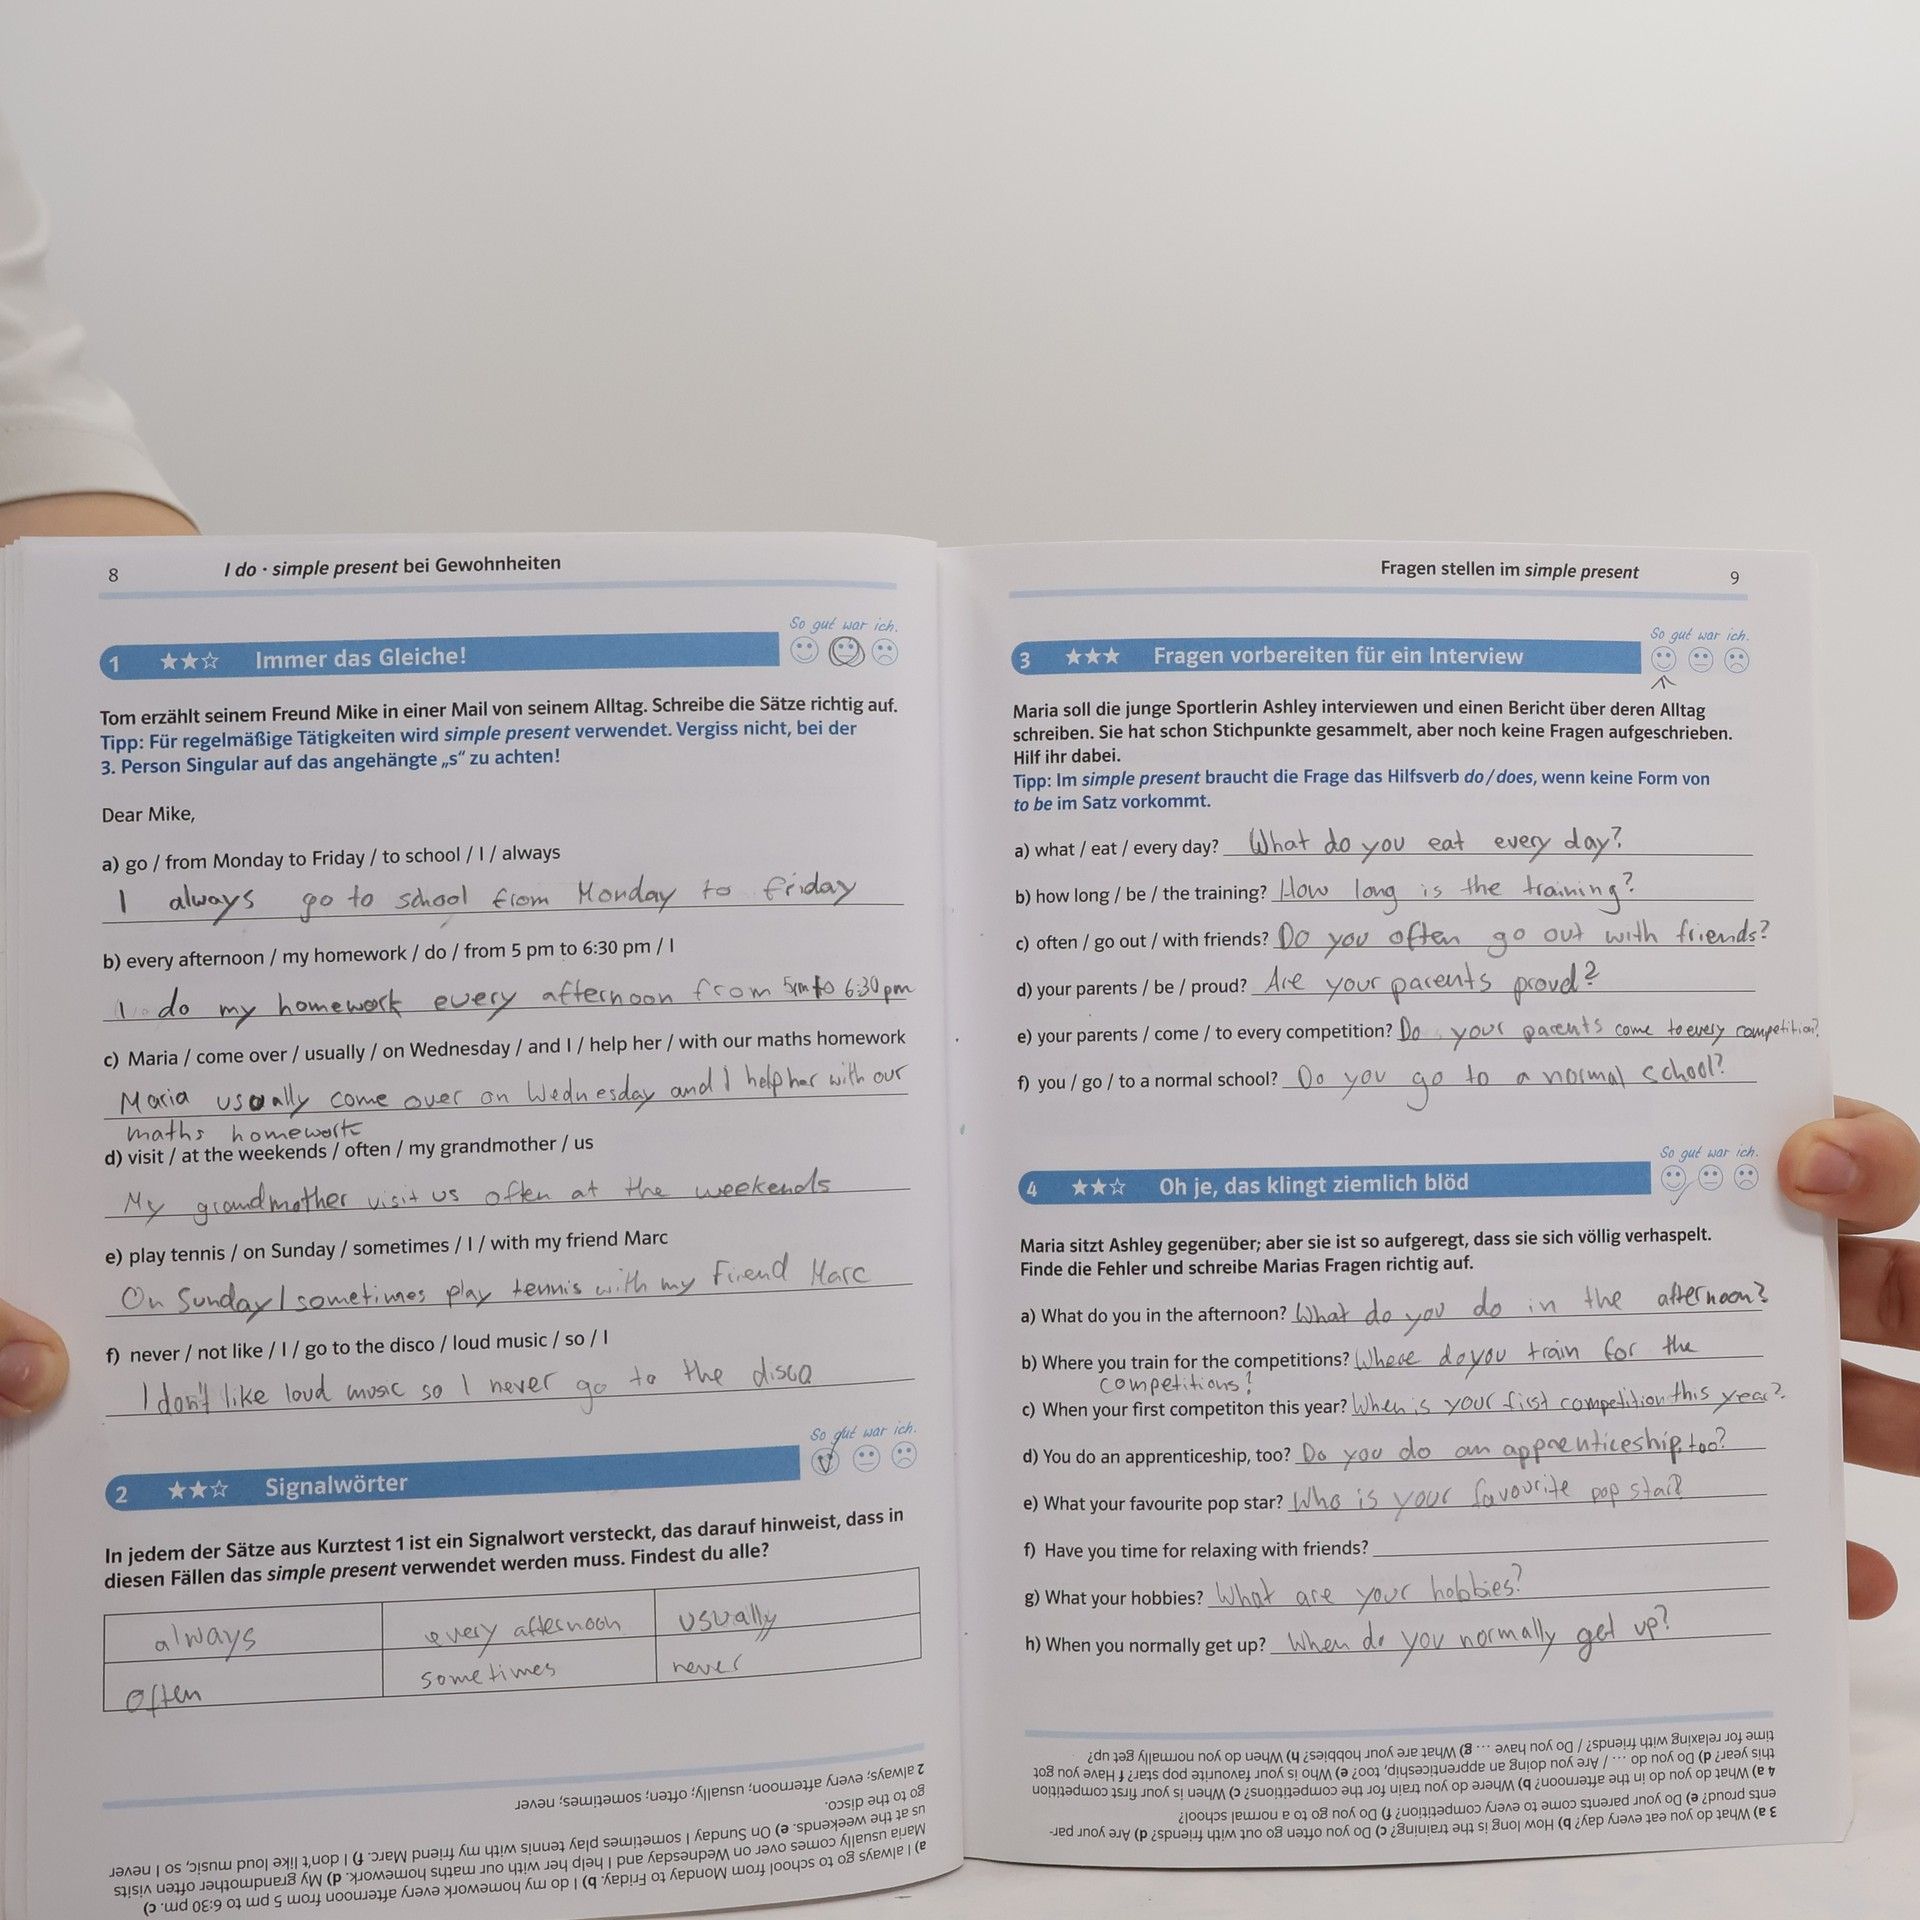 8
I do · simple present bei Gewohnheiten
So gut war ich.
1 ★★☆ Immer das Gleiche!
Tom erzählt seinem Freund Mike in einer Mail von seinem Alltag. Schreibe die Sätze richtig auf.
Tipp: Für regelmäßige Tätigkeiten wird simple present verwendet. Vergiss nicht, bei der
3. Person Singular auf das angehängte „s“ zu achten!
Dear Mike,
a) go / from Monday to Friday / to school / I / always
I always go to school from Monday to friday
b) every afternoon / my homework / do / from 5 pm to 6:30 pm / I
I do my homework every afternoon from 5pm to 6:30 pm
c) Maria / come over / usually / on Wednesday / and I / help her / with our maths homework
Maria usually come over on Wednesday and I help her with our
maths homework
d) visit / at the weekends / often / my grandmother / us
My grandmother visit us often at the weekends
e) play tennis / on Sunday / sometimes / I / with my friend Marc
On Sunday I sometimes play tennis with my friend Marc
f) never / not like / I / go to the disco / loud music / so / I
I don't like loud music so I never go to the disco
So gut war ich.
2 ★★☆ Signalwörter
In jedem der Sätze aus Kurztest 1 ist ein Signalwort versteckt, das darauf hinweist, dass in
diesen Fällen das simple present verwendet werden muss. Findest du alle?
always every afternoon usually
often sometimes never
a) I always go to school from Monday to Friday. b) I do my homework every afternoon from 5 pm to 6:30 pm. c)
Maria usually comes over on Wednesday and I help her with our maths homework. d) My grandmother often visits
us at the weekends. e) On Sunday I sometimes play tennis with my friend Marc. f) I don't like loud music, so I never
go to the disco.
2 always; every afternoon; usually; often; sometimes; never
Fragen stellen im simple present
9
So gut war ich.
3 ★★★ Fragen vorbereiten für ein Interview
Maria soll die junge Sportlerin Ashley interviewen und einen Bericht über deren Alltag
schreiben. Sie hat schon Stichpunkte gesammelt, aber noch keine Fragen aufgeschrieben.
Hilf ihr dabei.
Tipp: Im simple present braucht die Frage das Hilfsverb do/does, wenn keine Form von
to be im Satz vorkommt.
a) what / eat / every day? What do you eat every day?
b) how long / be / the training? How long is the training?
c) often / go out / with friends? Do you often go out with friends?
d) your parents / be / proud? Are your parents proud?
e) your parents / come / to every competition? Do your parents come to every competition?
f) you / go / to a normal school? Do you go to a normal school?
So gut war ich.
4 ★★☆ Oh je, das klingt ziemlich blöd
Maria sitzt Ashley gegenüber; aber sie ist so aufgeregt, dass sie sich völlig verhaspelt.
Finde die Fehler und schreibe Marias Fragen richtig auf.
a) What do you in the afternoon? What do you do in the afternoon?
b) Where you train for the competitions? Where do you train for the
competitions?
c) When your first competiton this year? When is your first competition this year?
d) You do an apprenticeship, too? Do you do an apprenticeship, too?
e) What your favourite pop star? Who is your favourite pop star?
f) Have you time for relaxing with friends?
g) What your hobbies? What are your hobbies?
h) When you normally get up? When do you normally get up?
3 a) What do you eat every day? b) How long is the training? c) Do you often go out with friends? d) Are your par-
ents proud? e) Do your parents come to every competition? f) Do you go to a normal school?
4 a) What do you do in the afternoon? b) Where do you train for the competitions? c) When is your first competition
this year? d) Do you do ... / Are you doing an apprenticeship, too? e) Who is your favourite pop star? f Have you got
time for relaxing with friends? / Do you have ... g) What are your hobbies? h) When do you normally get up?